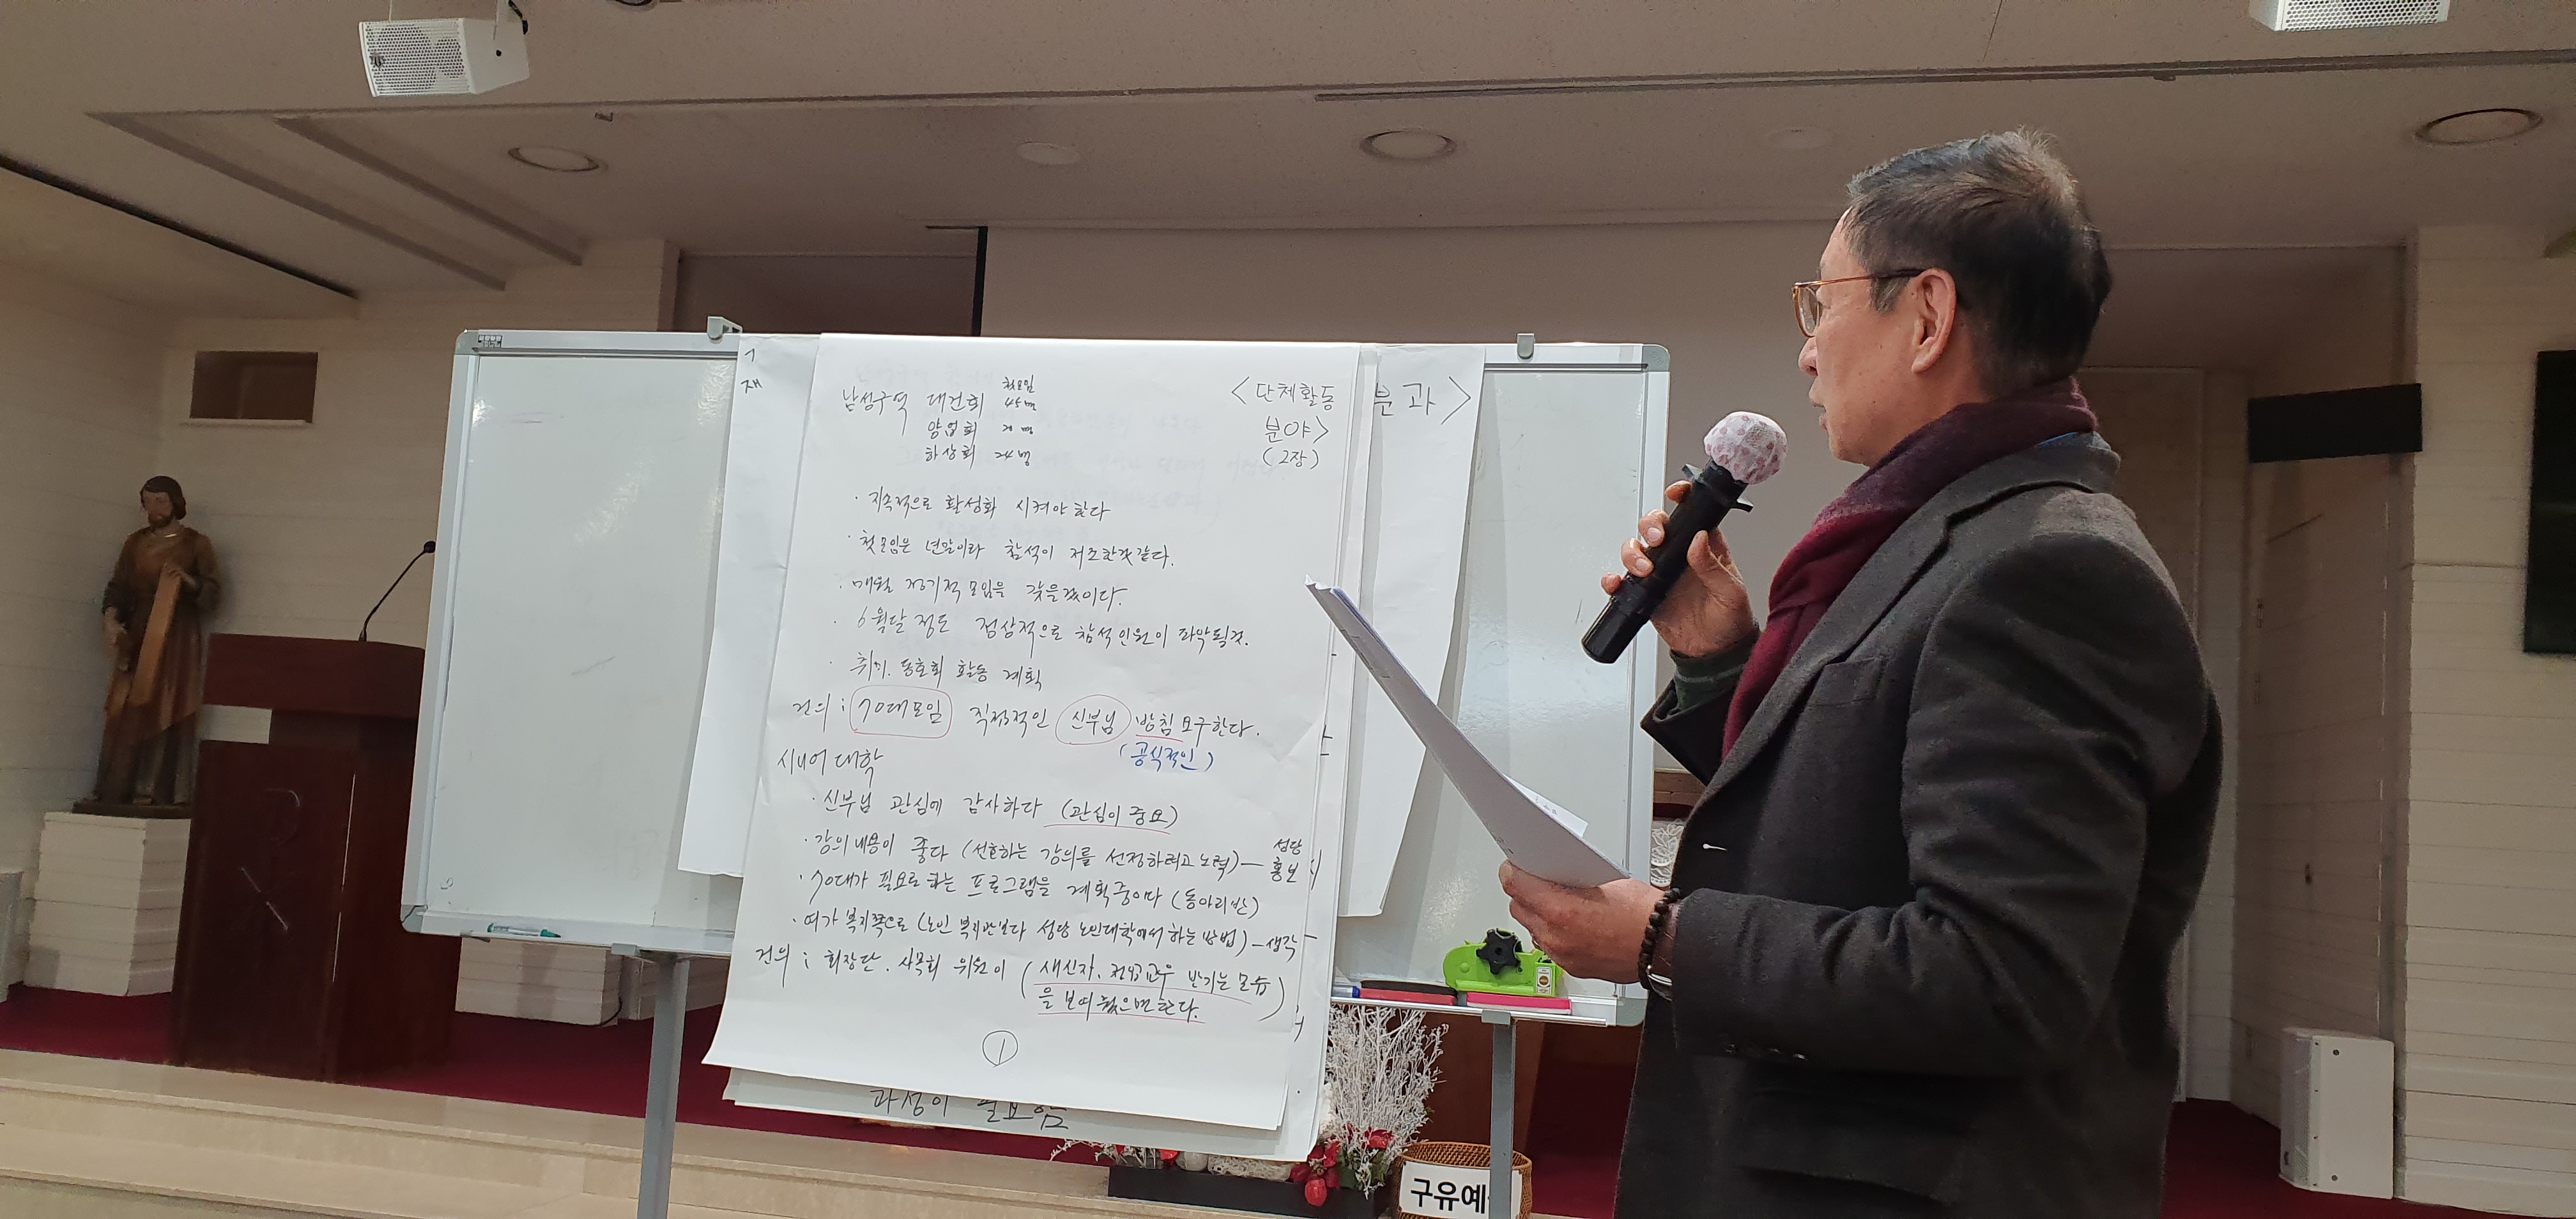 재
첫모임
남성구역 대건회 45명
양업회 명
하상회 24명
<단체활동
분야>
(2장)
분과>
· 지속적으로 활성화 시켜야 한다
· 첫모임은 년말이라 참석이 저조한것 같다.
· 매월 정기적 모임을 갖을 것이다.
· 6월달 정도 정상적으로 참석인원이 파악될것.
· 취미. 동호회 활동 계획
건의 : 70대모임 직접적인 신부님 방침 요구한다.
(공식적인)
시니어 대학
· 신부님 관심에 감사하다 (관심이 중요)
· 강의 내용이 좋다 (선호하는 강의를 선정하려고 노력) — 성당 홍보
· 70대가 필요로 하는 프로그램을 계획중이다 (동아리반)
· 여가 복지쪽으로 (노인 복지관보다 성당 노인대학에서 하는 방법) — 생각
건의 : 회장단. 사목회 위원이 (새신자. 전입교우 반기는 모습
을 보여 줬으면 한다.)
①
과정이 필요함
구유예